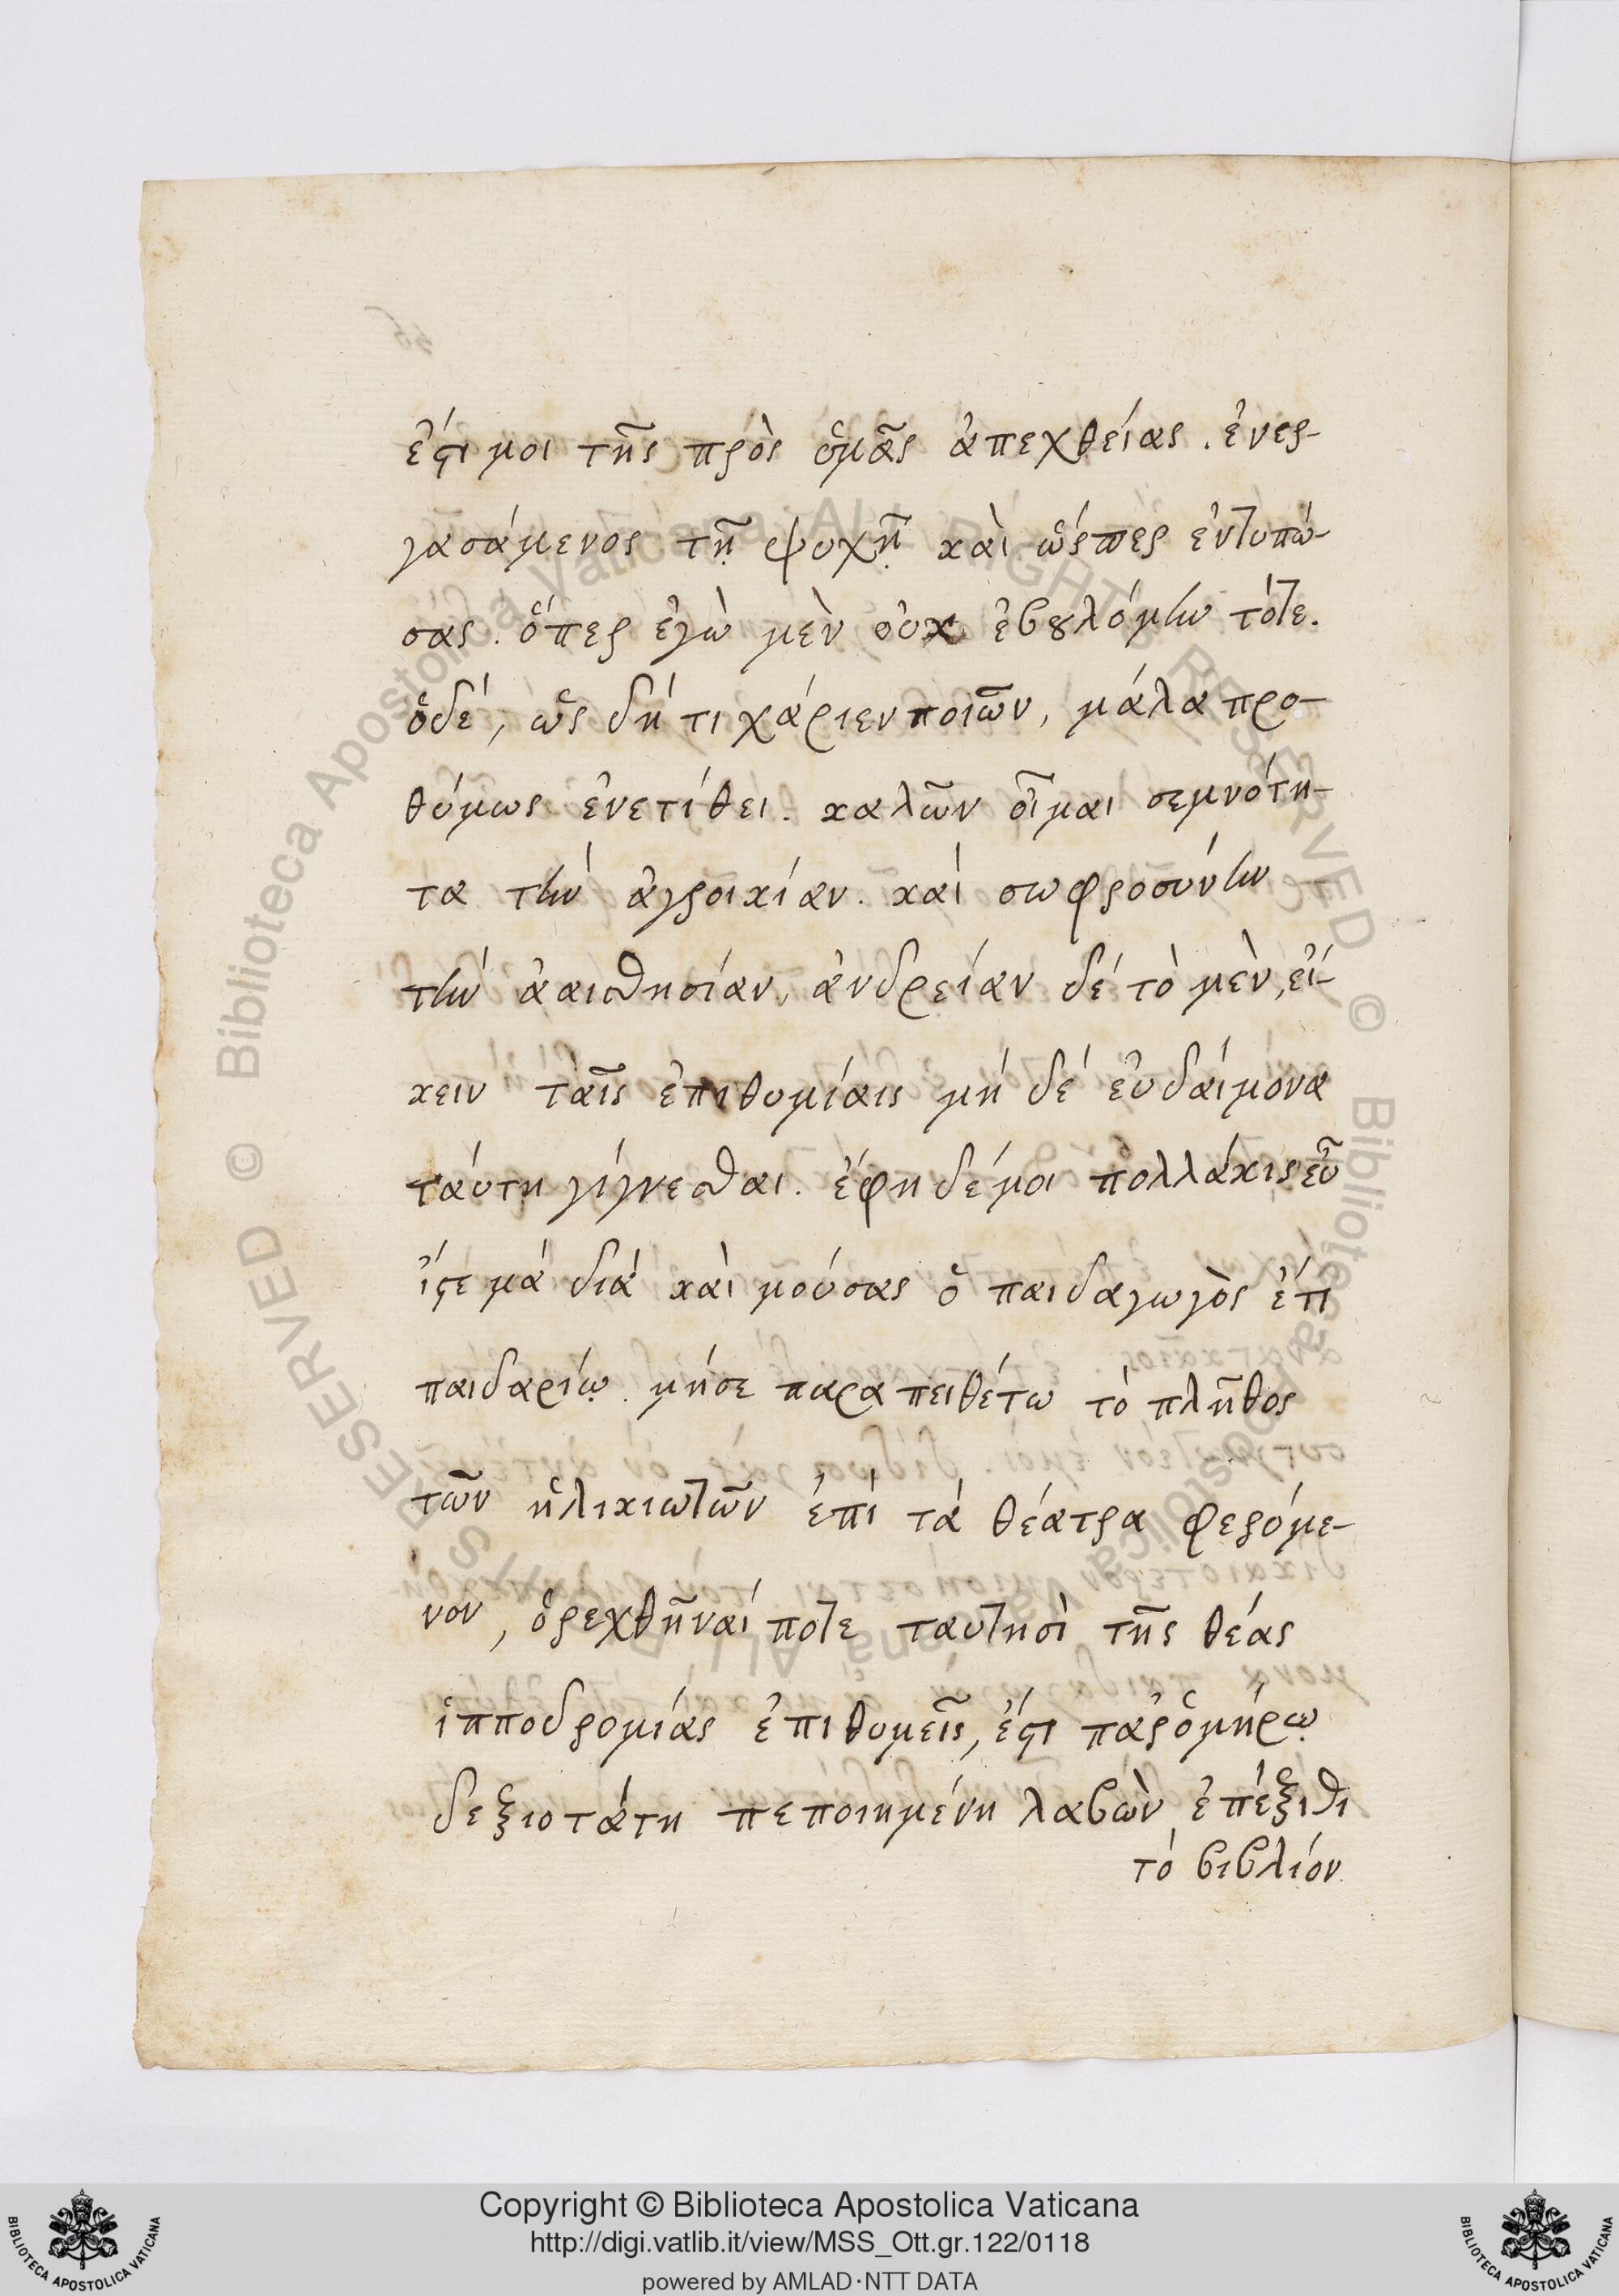 ἐστι μοι τῆς πρὸς ὑμᾶς ἀπεχθείας. ἐνερ-
γασάμενος τῇ ψυχῇ καὶ ὥςπερ ἐντυπώ-
σας. ὅπερ ἐγὼ μὲν οὐκ ἐβουλόμην τότε.
ὁδέ, ὡς δή τι χάριεν ποιῶν, μάλα προ-
θύμως ἐνετίθει. καλῶν οἶμαι σεμνότη-
τα τήν ἀγροικίαν. καί σωφροσύνην
τήν ἀαισθησίαν, ἀνδρείαν δέ τὸ μὲν, εἴ-
κειν ταῖς ἐπιθυμίαις μή δέ εὐδαίμονα
ταύτη γίγνεσθαι. ἔφη δέ μοι πολλάκις εὖ
ἴστε μά διά καὶ μούσας ὁ παιδαγωγὸς ἔτι
παιδαρίῳ. μήσε παραπειθέτω τό πλῆθος
τῶν ἡλικιωτῶν ἐπί τά θέατρα φερόμε-
νον, ὀρεχθῆναί ποτε ταυτησὶ τῆς θέας
ἱπποδρομίας ἐπιθυμεῖς, ἔστι παρ' ὁμήρῳ
δεξιοτάτη πεποιημένη λαβὼν ἐπέξιθι
τό βιβλίον
Copyright © Biblioteca Apostolica Vaticana
http://digi.vatlib.it/view/MSS_Ott.gr.122/0118
powered by AMLAD·NTT DATA
BIBLIOTECA APOSTOLICA VATICANA
BIBLIOTECA APOSTOLICA VATICANA
© Biblioteca Apostolica Vaticana ALL RIGHTS RESERVED © Biblioteca Apostolica Vaticana ALL RIGHTS RESERVED